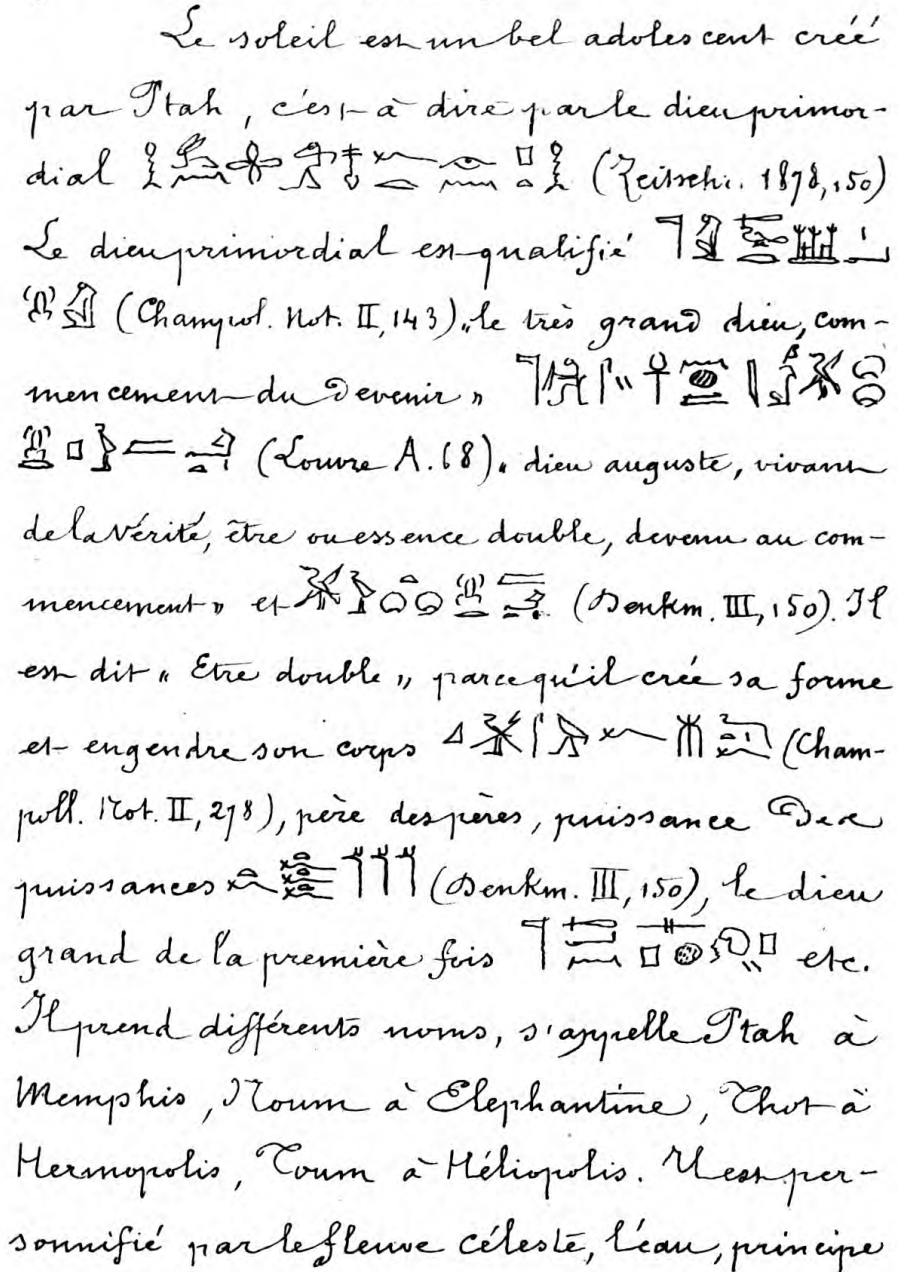 Le soleil est un bel adolescent créé
par Ptah, c'est-à dire par le dieu primor-
dial (Zeitschr. 1878, 150)
Le dieu primordial est qualifié
(Champol. Not. II, 143) „le très grand dieu, com-
mencement du devenir "
(Louvre A. 68) „ dieu auguste, vivant
de la Vérité, être ou essence double, devenu au com-
mencement " et (Denkm. III, 150). Il
est dit „ Etre double „ parce qu'il crée sa forme
et engendre son corps (Cham-
poll. Not. II, 278), père des pères, puissance des
puissances (Denkm. III, 150), le dieu
grand de la première fois etc.
Il prend différents noms, s'appelle Ptah à
Memphis, Noum à Elephantine, Thot à
Hermopolis, Toum à Héliopolis. Il est per-
sonnifié par le fleuve céleste, l'éau, principe